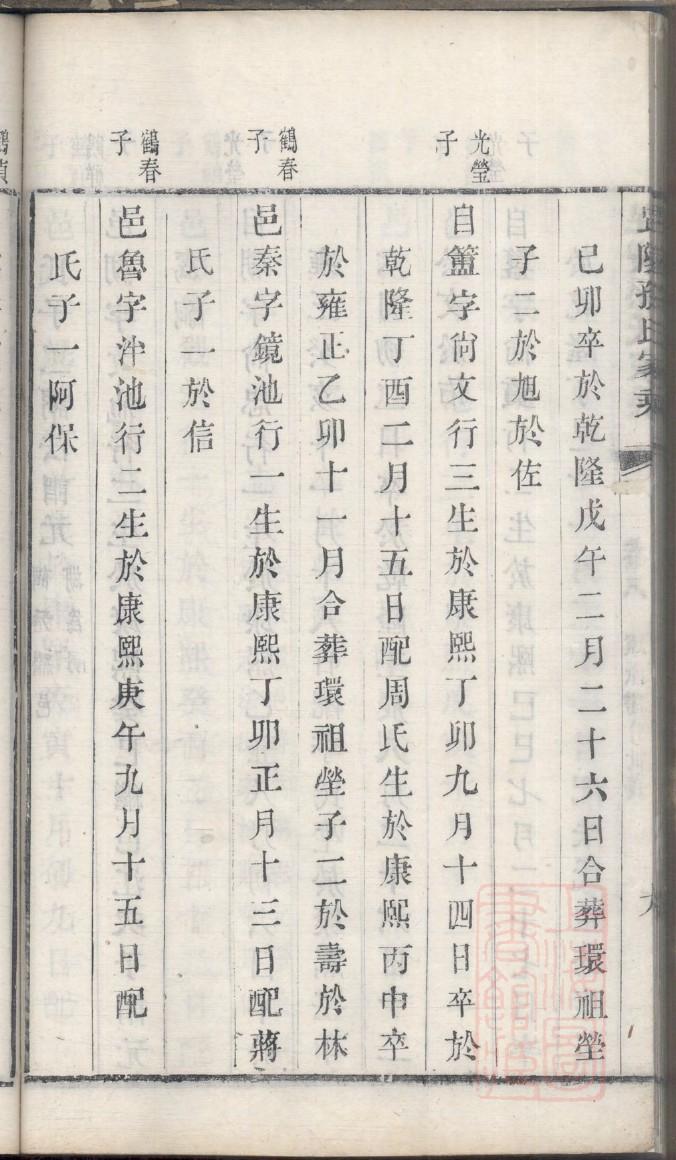 己卯卒於乾隆戊午二月二十六日合葬環祖塋
子二於旭於佐
光瑩
子
自簠字尙文行三生於康熙丁卯九月十四日卒於
乾隆丁酉二月十五日配周氏生於康熙丙申卒
於雍正乙卯十一月合葬環祖塋子二於壽於林
鶴春
子
邑秦字鏡池行一生於康熙丁卯正月十三日配蔣
氏子一於信
鶴春
子
邑魯字沖池行二生於康熙庚午九月十五日配
氏子一阿保